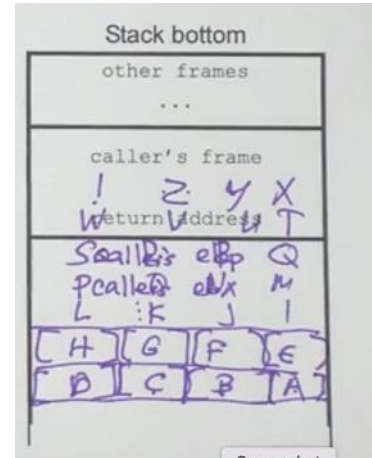 Stack bottom
other frames
...
caller's frame
! Z Y X
return address
W V U T
caller's ebp
S R Q
caller's ebx
P M
L K J I
H G F E
D C B A